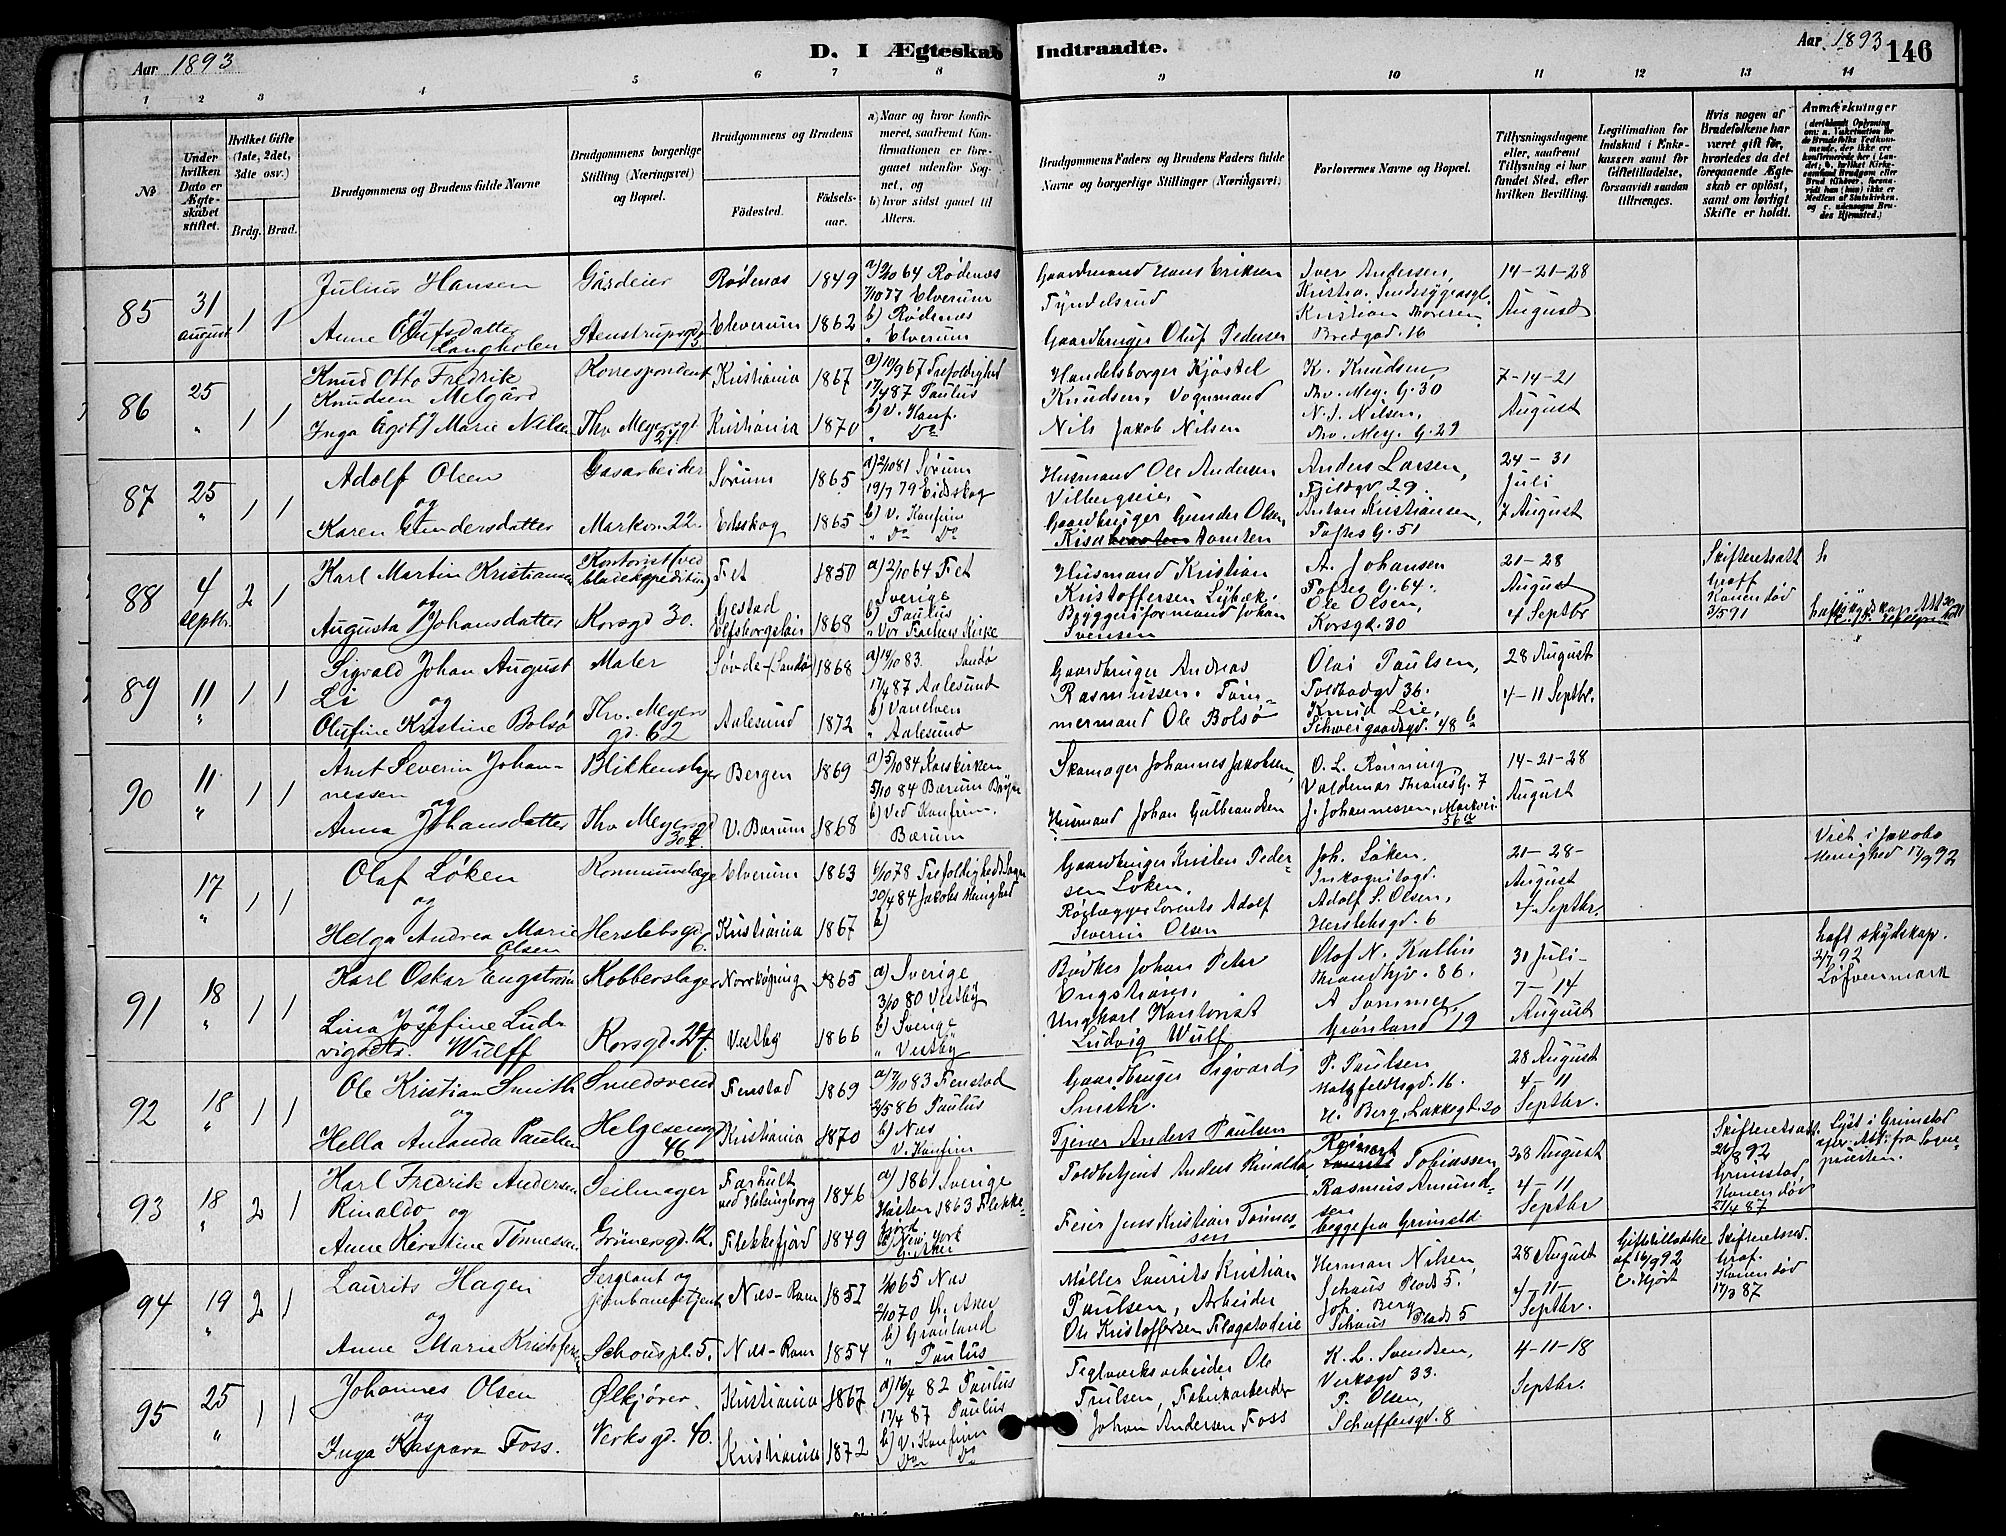 Aar 1893
D. I Ægteskab Indtraadte.
Aar 1893
146
1 2 3 4 5 6 7 8 9 10 11 12 13 14
№
Under hvilken Dato er Ægteskabet stiftet.
Hvilket Gifte (1ste, 2det, 3die osv.)
Brdg. Brud.
Brudgommens og Brudens fulde Navne
Brudgommens borgerlige Stilling (Næringsvei) og Bopæl.
Brudgommens og Brudens
Fødested.
Fødselsaar.
a) Naar og hvor konfirmeret, saafremt Konfirmationen er foregaaet udenfor Sognet, og
b) hvor sidst gaaet til Alters.
Brudgommens Faders og Brudens Faders fulde Navne og borgerlige Stillinger (Næringsvei)
Forlovernes Navne og Bopæl.
Tillysningsdagene eller, saafremt Tillysning ei har fundet Sted, efter hvilken Bevilling.
Legitimation for Indskud i Enkekassen samt for Giftetilladelse, forsaavidt saadan tiltrænges.
Hvis nogen af Brudefolkene har været gift før, hvorledes da det foregaaende Ægteskab er opløst, samt om lovligt Skifte er holdt.
Anmærkninger
85 31 august 1 1
Julius Hansen
og
Anne Olufsdatter Langholen
Gårdeier
Stenstrupsgd 3
Rødenæs 1849
Elverum 1862
a) 2/10 64 Rødenæs
7/10 77 Elverum
b) Rødenæs
" Elverum
Gaardmand Hans Eriksen
Tyndelsrud
Gaardbruger Oluf Pedersen
Iver Andersen,
Kristia. Sindssygeasyl
Kristian Thoresen
Bredgad. 16
14-21-28
August
86 25 " 1 1
Knud Otto Fredrik
Knudsen Melgård
Inga Marie Nilsen
Korrespondent
Thv. Meyersgd 27
Kristiania 1867
Kristiania 1870
a) 10/9 67 Trefoldighed
17/4 87 Paulus
b) V. Konf.
" Do
Handelsborger Kjøstel
Knudsen, Vognmand
Nils Jakob Nilsen
K. Knudsen,
Thv. Mey. G. 30
N. J. Nilsen,
Thv. Mey. G. 29
7-14-21
August
87 25 " 1 1
Adolf Olsen
og
Karen Gundersdatter
Gasarbeider
Markvn. 22.
Sørum 1865
Eidsskog 1865
a) 2/10 81 Sørum
19/7 79 Eidsskog
b) V. Konfirm
" Do Do
Husmand Ole Andersen
Vilbergseie,
Gaardbruger Gunder Olsen
Anders Larsen,
Fjeldgd 29.
Anton Kristiansen,
Toftes G. 51
24-31
Juli
7 August
88 4 Septbr. 2 1
Karl Martin Kristiansen
og
Augusta Johansdatter
Kontorist (ved
bladekspedition)
Korsgd 30.
Fet 1850
Gestad
Elfsborgslän 1868
a) 2/10 64 Fet
Sverige
b) Paulus
" Vor Frelsers Kirke
Husmand Kristian
Kristoffersen Lybæk,
Byggersformand Johan
Svensen
A. Johansen
Toftes G. 64.
Ole Olsen,
Korsgd. 30
21-28
August
4 Septbr
Skifteretsatt
Graff
Konen død
3/5 91
89 11 " 1 1
Sigvald Johan August
Li
og
Olufine Kristine Bolsø
Maler
Thv. Meyers
gd. 62
Søvde (Sandø) 1868
Aalesund 1872
a) 14/10 83. Sandø
17/4 87 Aalesund
b) Vanelven
" Aalesund
Gaardbruger Andreas
Rasmussen. Tømmermand
Ole Bolsø
Olai Paulsen,
Toldbodgd 36.
Knud Lie,
Schweigaardsgd. 48 b
28 August
4-11 Septbr.
90 11 " 1 1
Amt Severin Johannessen
og
Anna Johansdatter
Blikkenslager
Thv. Meyersgd 30
Bergen 1869
V. Bærum 1868
a) 5/10 84 Korskirken
5/10 84 Bærum Bryn
b) Ved Konfirm.
Bærum
Skomager Johannes Jakobsen,
Husmand Johan Gulbrandsen
O. L. Rønning
Valdemar Thranesg. 7
J. Johannessen, Markvei.
56 a
14-21-28
August
17 " 1 1
Olaf Løken
og
Helga Andrea Marie
Olsen
Kommunelæge
Herslebsgd 6.
Elverum 1863
Kristiania 1867
6/10 78 Trefoldigheds Sogn
20/4 84 Jakobs Menighed
b)
Gaardbruger Kristen Pedersen
Løken,
Rørlægger Lorents Adolf
Severin Olsen
Joh. Løken,
Inkognitogd.
Adolf S. Olsen,
Herslebsgd. 6
21-28-
August
4-Septbr.
Viet i Jakobs
Menighed 17/9 92
91 18 " 1 1
Karl Oskar Engström
og
Lina Josefine Ludvigsdtr.
Wulff
Kobberslager
Korsgd. 27.
Norrkøping 1865
Vestby 1866
a) Sverige
3/10 80 Vestby
b) Sverige
" Vestby
Bødker Johan Peter
Engström,
Ungkarl Kontorist
Ludvig Wulf
Olof N. Kallin
Strandhjv. 86.
A Sommer,
Grønland 19
31 Juli-
7-14
August
haft skydskap.
21/7 92
Løfvenmark
92 18 " 1 1
Ole Kristian Smith
og
Hella Amanda Paulsen
Smedsvend
Helgesensg 46
Fenstad 1869
Kristiania 1870
a) 7/10 83 Fenstad
2/5 86 Paulus
b) Næs
V. Konfirm
Gaardbruger Sigvard
Smith.
Tjener Anders Paulsen
P. Paulsen
Motzfeldtsgd. 16.
H. Berg, Lakkegd. 20
28 August
4-11
Septbr.
93 18 " 2 1
Karl Fredrik Andersen
Rinaldo og
Anne Kirstine Tønnessen
Seilmager
Grünersgd. 12.
Farhult
ved Helsingborg 1846
Flekkefjord 1849
a) 1861 Sverige
Høsten 1863 Flekkefjord
b) New York
Toldbetjent Anders Rinaldo
Feier Jens Kristian Tønnessen
Reinert Tobiassen
Rasmus Amundsen
begge fra Grimstd
28 August
4-11
Septbr
Skifteretsatt.
20/8 92
Grimstad
Konen død
27/4 87
Lyst i Grimstad
efter Att. fra Sognepræsten.
94 19 " 2 1
Laurits Hagen
og
Anne Marie Kristofersen
Sergeant og
jernbanebetjent
Schouspl. 5.
Næs-Rom 1851
Næs-Rom 1854
1/10 65 Næs
2/10 70 G. Aker
b) Grønland
" Paulus
Møller Laurits Kristian
Paulsen, Arbeider
Ole Kristoffersen Flagstadeie
Herman Nilsen,
Schous Plads 5.
Joh. Berg
Schous Plads 5
28 August
4-11-
Septbr.
Giftetilladelse
af 16/9 92
C. Hjort
Skifteretsad.
Graf.
Konen død
17/3 87
95 25 " 1 1
Johannes Olsen
og
Inga Kaspara Foss.
Ølkjører
Verksgd. 40.
Kristiania 1867
Kristiania 1872
a) 16/4 82 Paulus
17/4 87 Paulus
b) V. Konfirm
Do Do
Teglverksarbeider Ole
Trulsen, Fabrikarbeider
Johan Andersen Foss
K. L. Svendsen,
Verksgd 33.
P. Olsen,
Schaffersgd. 8
4-11-18
Septbr.